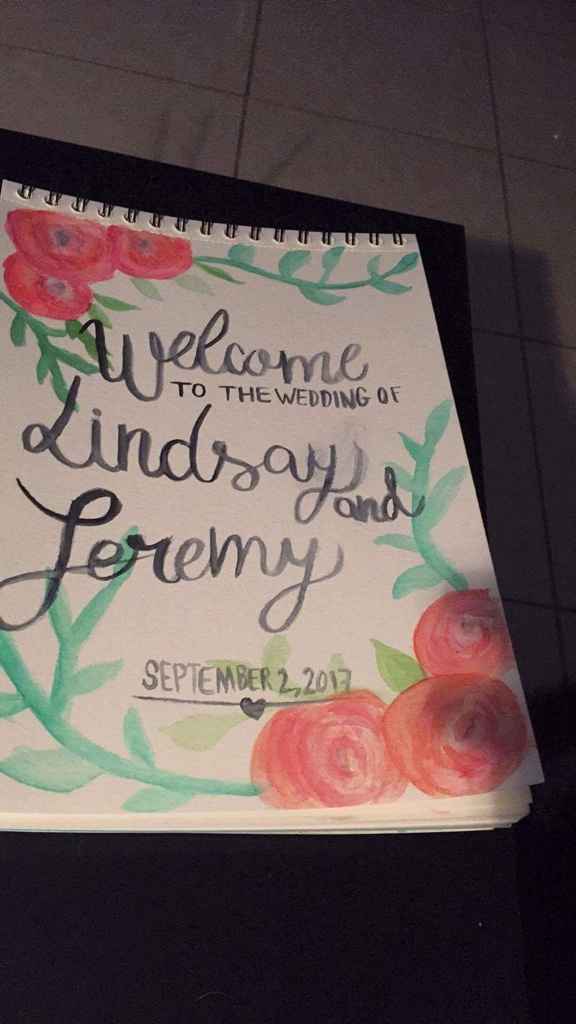 Welcome
TO THE WEDDING OF
Lindsay
and
Jeremy
SEPTEMBER 2, 2017